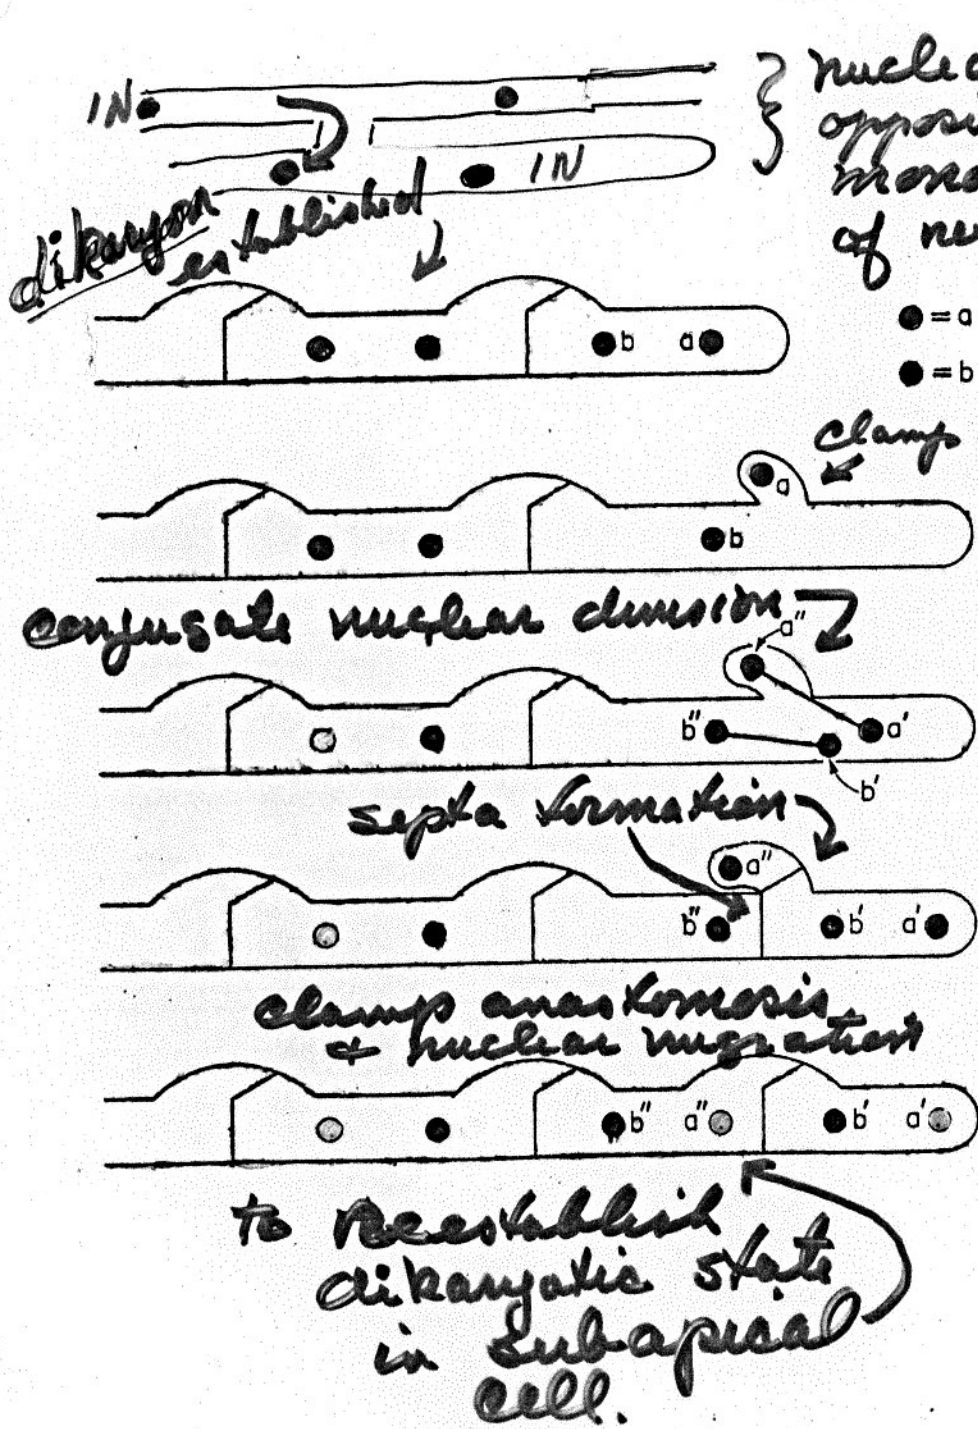 1N
1N
nucle
opposi
mono
of nu
dikaryon
established
b a
= a
= b
clamp
a
b
conjugate nuclear division
a"
b" a'
b'
septa formation
a"
b" b' a'
clamp anastomosis
& nuclear migration
b" a" b' a'
to Reestablish
dikaryotic state
in subapical
cell.